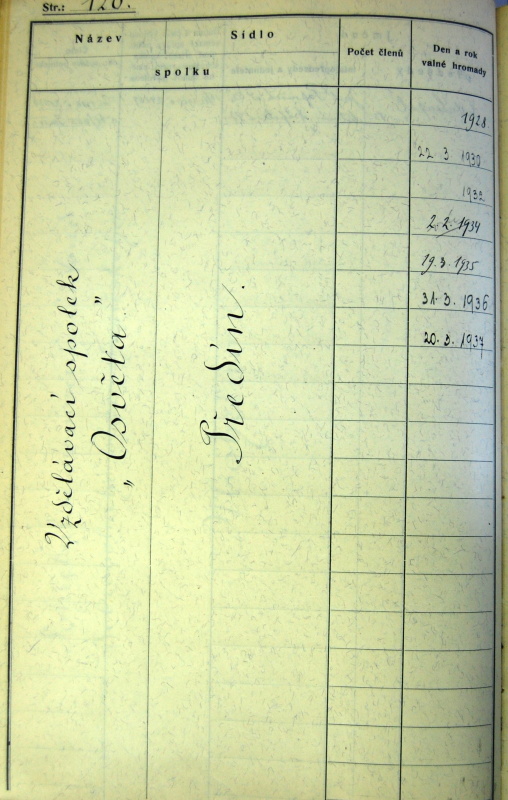 Str.: 120.
Název
Sídlo
spolku
Počet členů
Den a rok
valné hromady
Vzdělávací spolek
„Osvěta”
Předín.
1928
22. 3. 1930
1932.
2. 2. 1934
19. 3. 1935
31. 3. 1936
20. 3. 1937